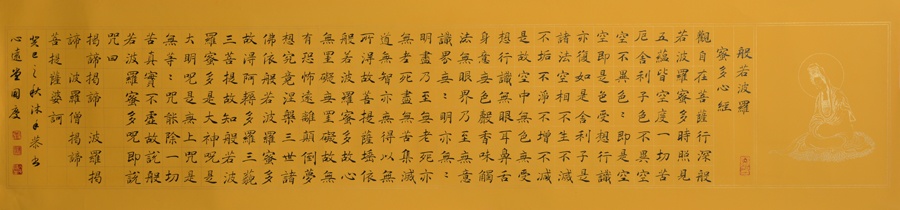 般若波羅
蜜多心經
觀自在菩薩行深般
若波羅蜜多時照見
五蘊皆空度一切苦
厄舍利子色不異空
空不異色：即是空
空即是色受想行識
亦復如是舍利子是
諸法空相不生不滅
不垢不淨不增不減
是故空中無色無受
想行識無眼耳鼻舌
身意無色聲香味觸
法無眼界乃至無意
識界無：明亦無：
明盡乃至無老死亦
無老死盡無苦集滅
道無智亦無得以無
所得故菩提薩埵依
般若波羅蜜多故心
無罣礙無罣礙故無
有恐怖遠離顛倒夢
想究竟涅槃三世諸
佛依般若波羅蜜多
故得阿耨多羅三藐
三菩提故知般若波
羅蜜多是大神咒是
大明咒是無上咒是
無等：咒能除一切
苦真實不虛故說般
若波羅蜜多咒即說
咒曰
揭諦揭諦 波羅揭
諦 波羅僧揭諦
菩提薩婆訶
癸巳之秋沐手恭書
心遠堂國慶